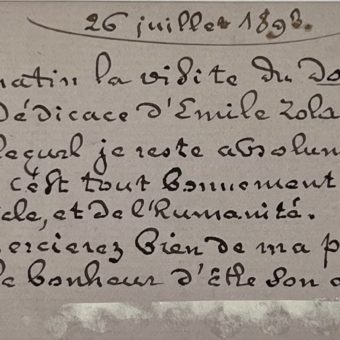 26 juillet 1893.
matin la visite du do
Dédicace d'Emile Zola
lequel je reste absolum
c'est tout bonnement
cle, et de l'Humanité.
ercierez bien de ma p
le bonheur d'être son a